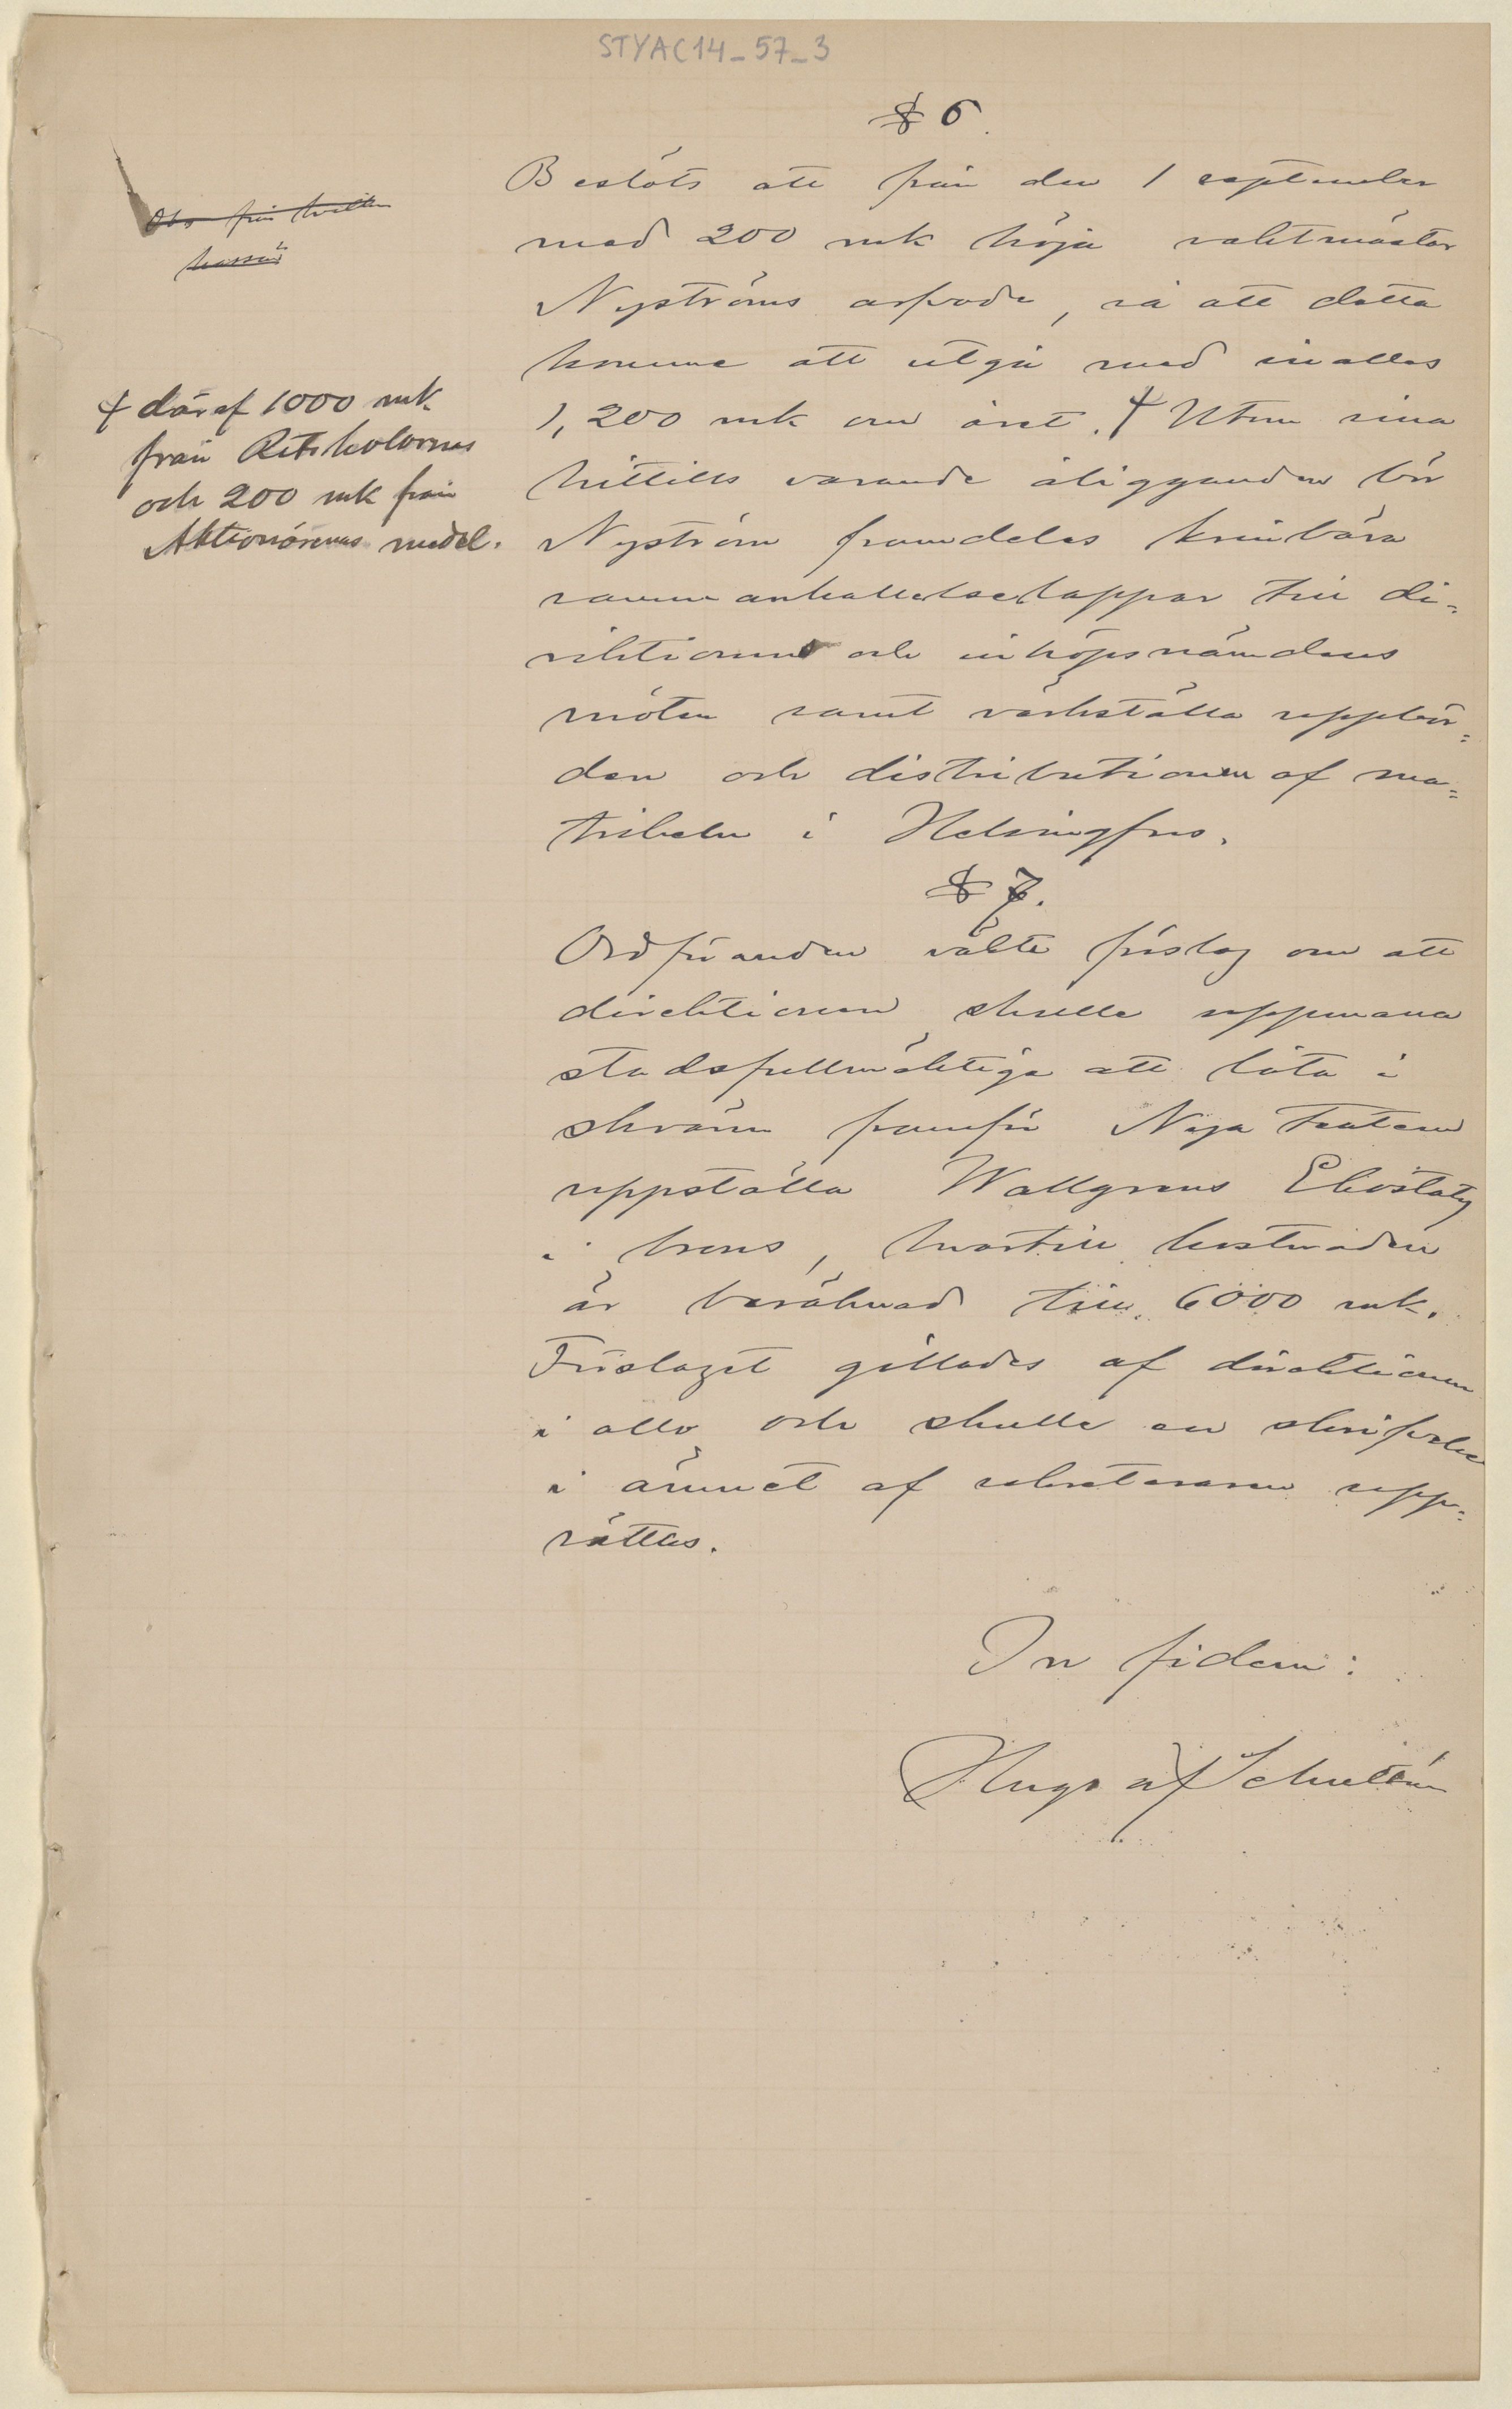 STYAC14_57_3
§ 6.
Beslöts att från den 1 september
med 200 mk höja vaktmäster
Nyströms arfvode, så att detta
komme att utgå med inalles
1,200 mk om året. ☨ Utom sina
hittills varande åligganden bör
Nyström framdeles kringbära
sammankallelselappar till di=
rektionens och inköpsnämndens
möten samt värkställa uppbör=
den och distributionen af ma=
trikeln i Helsingfors.
Obs från hvilken
kassa
☨ däraf 1000 mk
från Ritskolornas
och 200 mk från
Aktionärernas medel.
§ 7.
Ordföranden väkte förslag om att
direktionen skulle uppmana
stadsfullmäktige att låta i
skvären framför Nya Teatern
uppställa Wallgrens Ekostaty
i brons, hvartill kostnaden
är beräknad till 6000 mk.
Förslaget gillades af direktionen
i allo och skulle en skrifvelse
i ämnet af sekreteraren upp=
sättas.
In fidem:
Hugo af Schultén